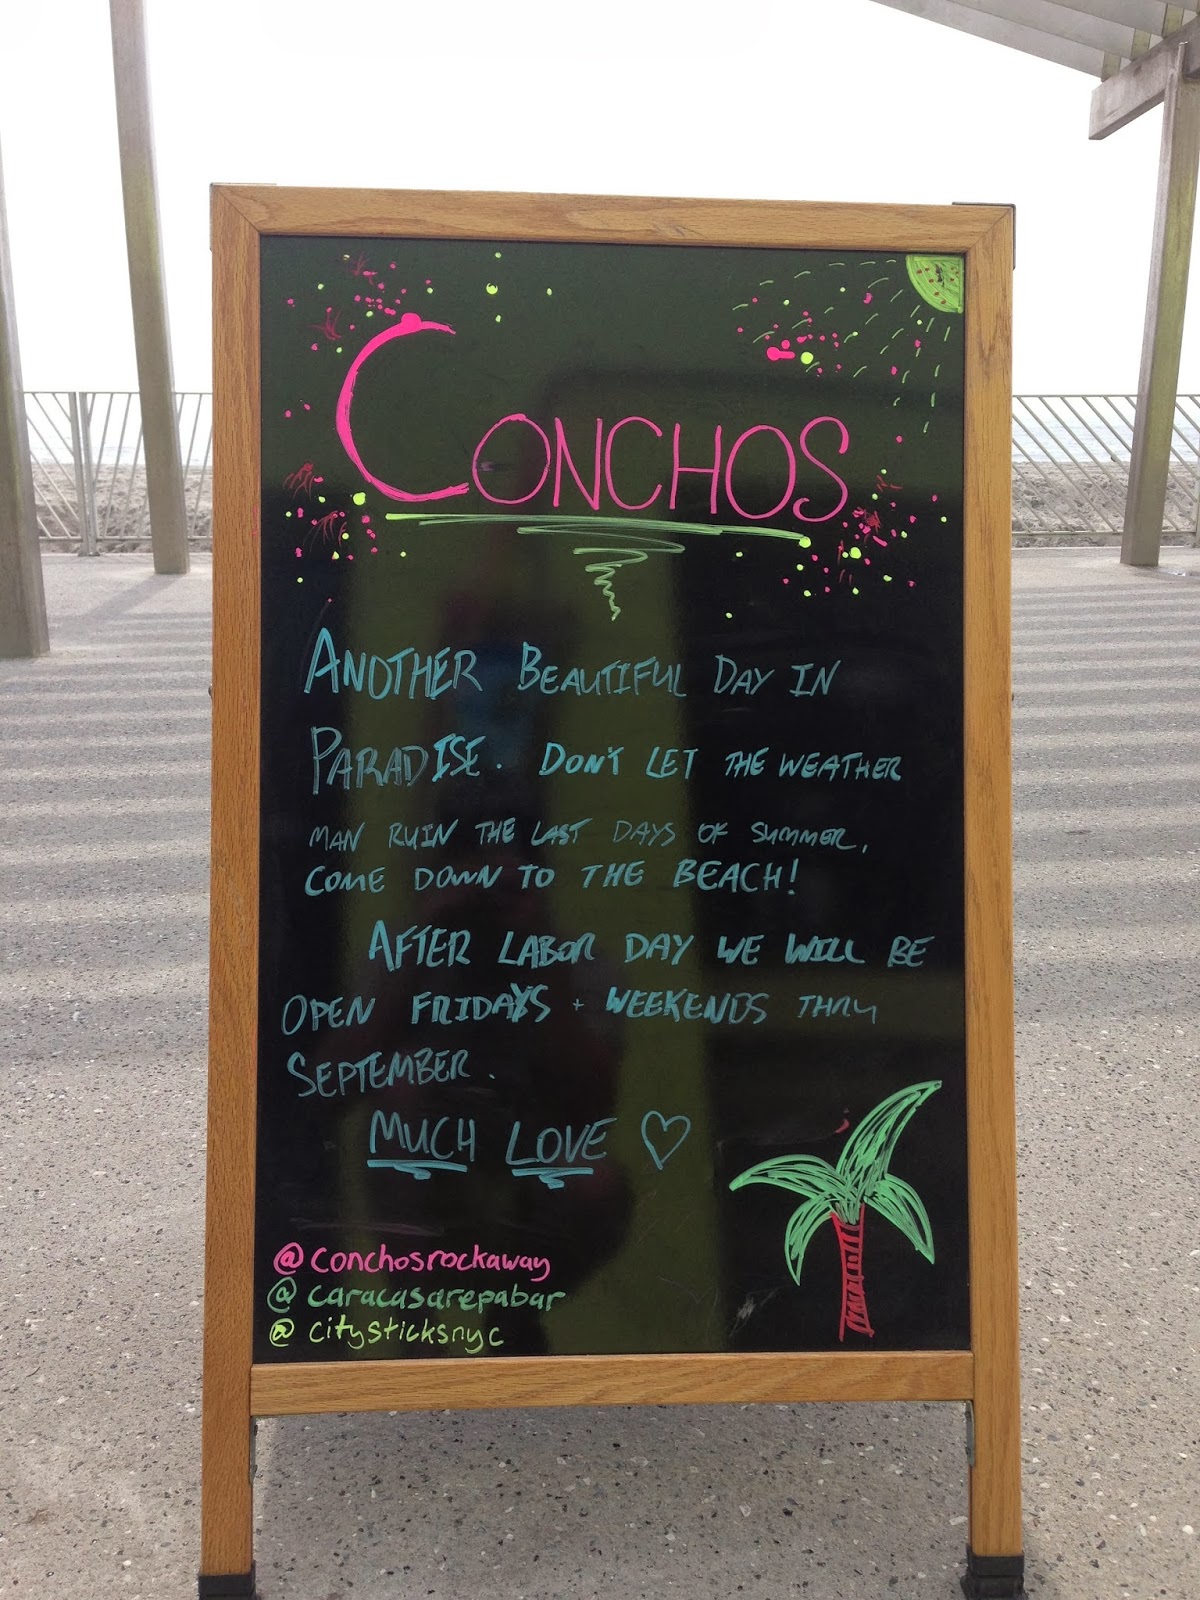 CONCHOS
ANOTHER BEAUTIFUL DAY IN
PARADISE. DON'T LET THE WEATHER
MAN RUIN THE LAST DAYS OF SUMMER,
COME DOWN TO THE BEACH!
AFTER LABOR DAY WE WILL BE
OPEN FRIDAYS + WEEKENDS THRU
SEPTEMBER.
MUCH LOVE ♡
@conchosrockaway
@caracasarepabar
@citysticksnyc